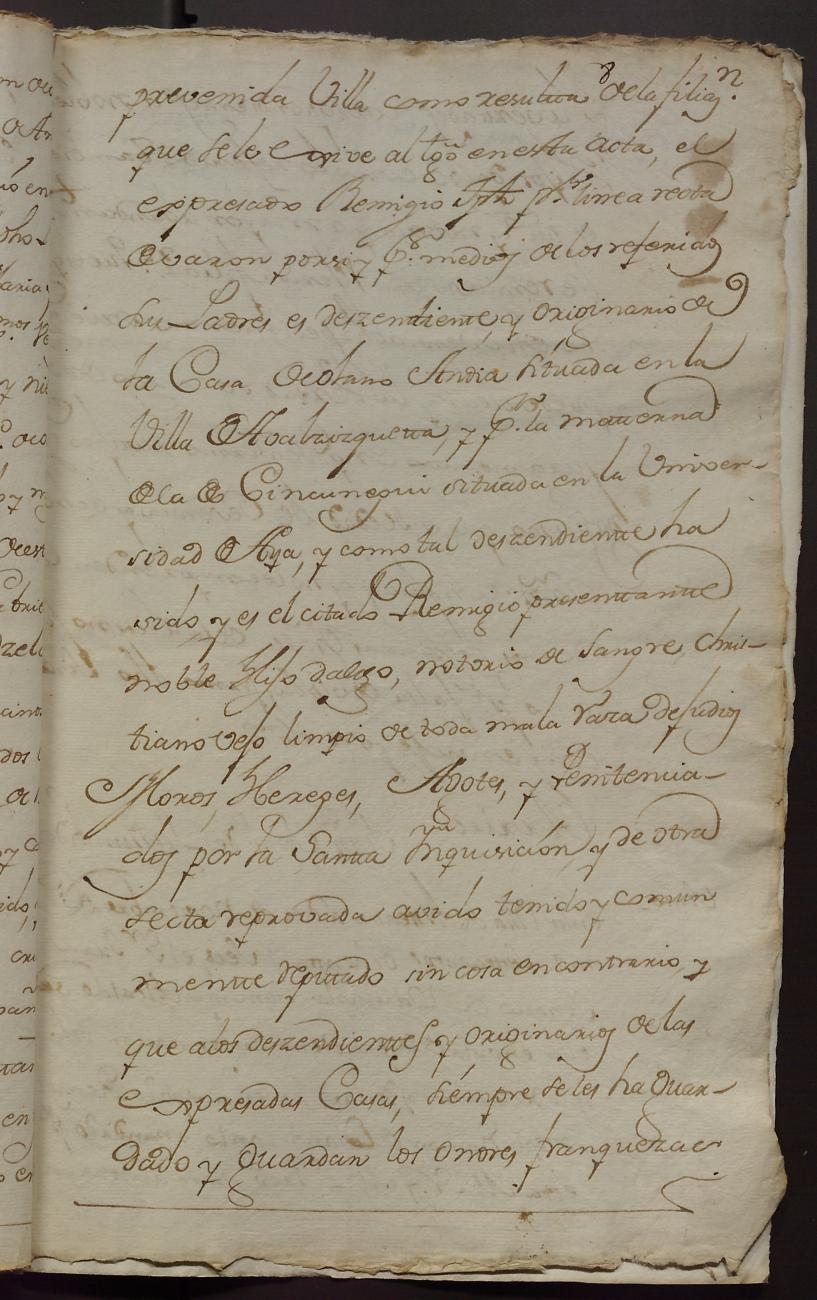 prevenida Villa como resulta de la filiaz.n
que se le exive al tgo en esta acta, el
expresado Remigio Jph pr. linea recta
de varon por si y pr. medio de los referidos
sus Padres es deszendiente, y originario de
la Casa de olano Andia situada en la
Villa de Avalzizquetta, y pr. la materna
de la de Cincunegui situada en la Univer-
sidad de Aya, y como tal deszendiente ha
sido, y es el citado Remigio presentante
noble Hijo dalgo, notorio de sangre, chris-
tiano vejo limpio de toda mala raza de judios
Moros, Hereges, Agotes, y Penitencia-
dos por la Santa Ynquisición, y de otra
secta reprovada avido tenido y comun
mentte reputado sin cosa en contrario, y
que a los deszendienttes y originarios de las
expresadas Casas, siempre se les ha guar-
dado y guardan los onores franquezas